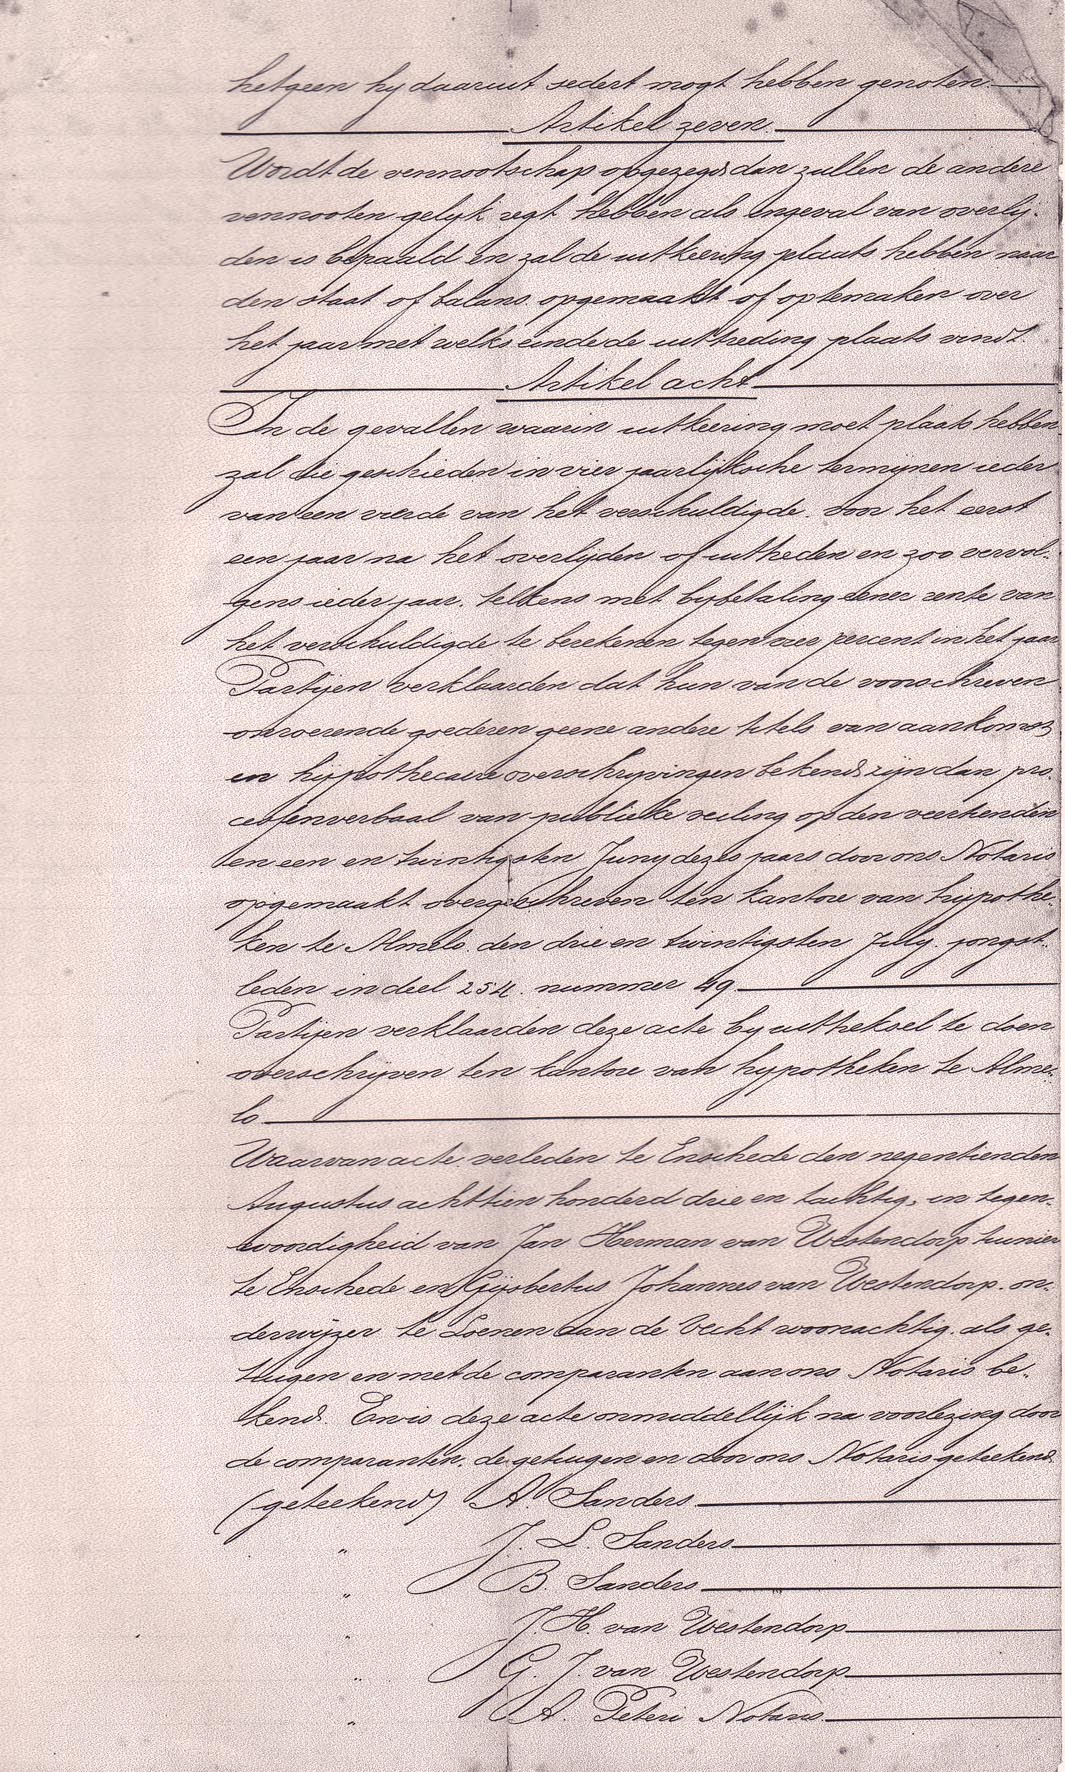 hetgeen hy daaruit sedert mogt hebben genoten.
Artikel zeven.
Wordt de vennootschap opgezegd dan zullen de andere
vennooten gelyk regt hebben als ingeval van overlij-
den is bepaald en zal de uitkeering plaats hebben naar
den staat of balans opgemaakt of optemaken over
het jaar met welks einde de uittreding plaats vindt.
Artikel acht
In de gevallen waarin uitkeering moet plaats hebben
zal die geschieden in vier jaarlijksche termynen ieder
van een vierde van het verschuldigde. voor het eerst
een jaar na het overlyden of uittreden en zoo vervol-
gens ieder jaar. telkens met bybetaling eener rente van
het verschuldigde te berekenen tegen vier percent in het jaar
Partijen verklaarden dat hun van de voorschreven
onroerende goederen geene andere titels van aankomst
en hypothecaire overschryvingen bekend zyn dan pro-
cessenverbaal van publieke veiling op den veertienden
en een en twintigsten Juny dezes jaars door ons Notaris
opgemaakt overgeschreven ten kantore van hypothe-
ken te Almelo den drie en twintigsten July jongst-
leden in deel 254. nummer 49
Partijen verklaarden deze acte by uittreksel te doen
overschrijven ten kantore van hypotheken te Alme-
lo
Waarvan acte verleden te Enschede den negentienden
Augustus achttien honderd drie en tachtig, in tegen-
woordigheid van Jan Herman van Westendorp
te Enschede en Gijsbertus Johannes van Westendorp. on-
derwijzer te Loenen aan de Vecht woonachtig. als ge-
tuigen en met de comparanten aan ons Notaris be-
kend. En is deze acte onmiddellijk na voorlezing door
de comparanten. de getuigen en door ons Notaris geteekend
(geteekend) A. Sanders
„ J. L. Sanders
„ B. Sanders
„ J. H. van Westendorp
„ G. J. van Westendorp
„ A. Peteri Notaris